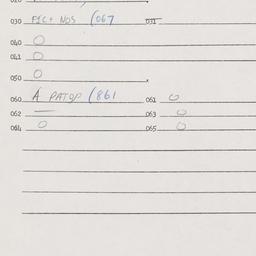 030 FIC+ NOS (067 031
040 0
041 0
050 0
060 A PATOP (861 061 0
062 — 063 0
064 0 065 0